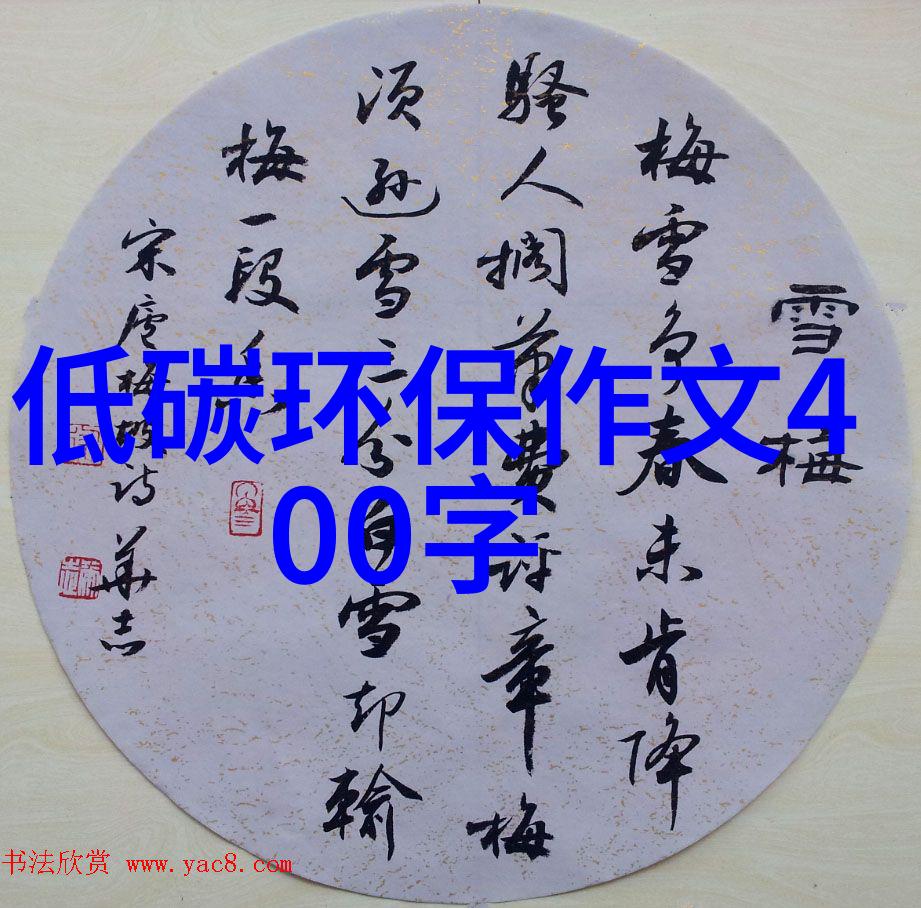 低碳环保作文4
00字
雪梅
梅雪争春未肯降
骚人搁筆費評章梅
须逊雪三分白雪却输
梅一段香
宋卢梅坡诗 華志
书法欣赏 www.yac8.com